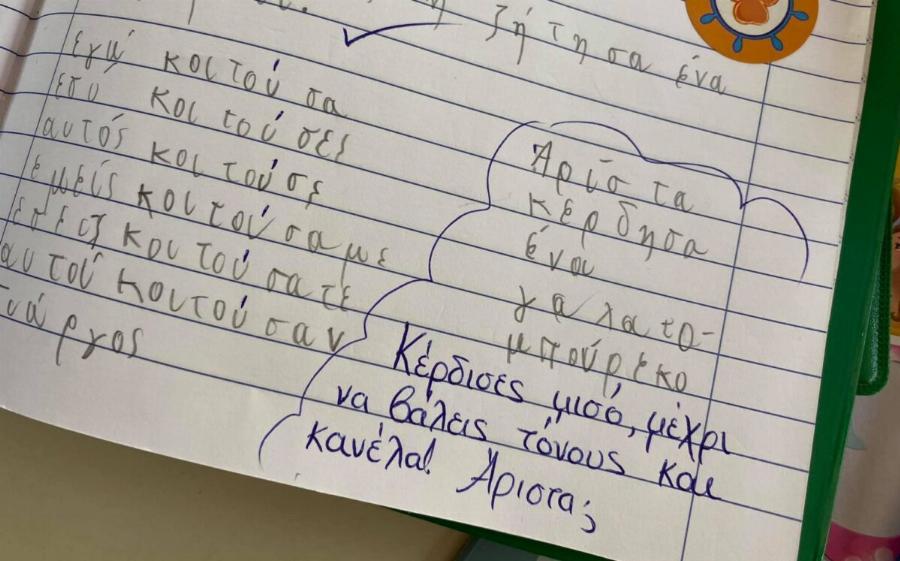 ζή τη σα ένα
εγώ κοιτού σα
εσύ κοι τού σες
αυτός κοι τού σε
εμείς κοι τού σα με
εσείς κοι τού σα τε
αυτοί κοιτού σαν
Άρισ τα
κέρ δησα
ένα
γα λα το-
μπούρεκο
Κέρδισες μισό, μέχρι
να βάλεις τόνους και
κανέλα! Άριστα;